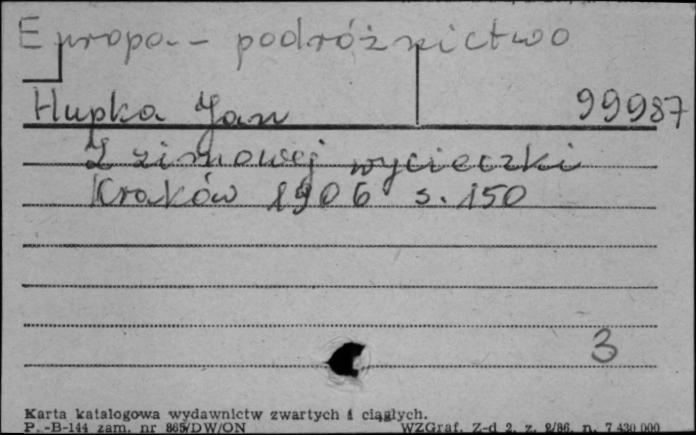 Europa - podróżnictwo
Hupka Jan 99987
Z zimowej wycieczki
Kraków 1906 s. 150
3
Karta katalogowa wydawnictw zwartych i ciągłych.
P.-B-144 zam. nr 865/DW/ON WZGraf. Z-d 2, z. 2/86, n. 7 430 000